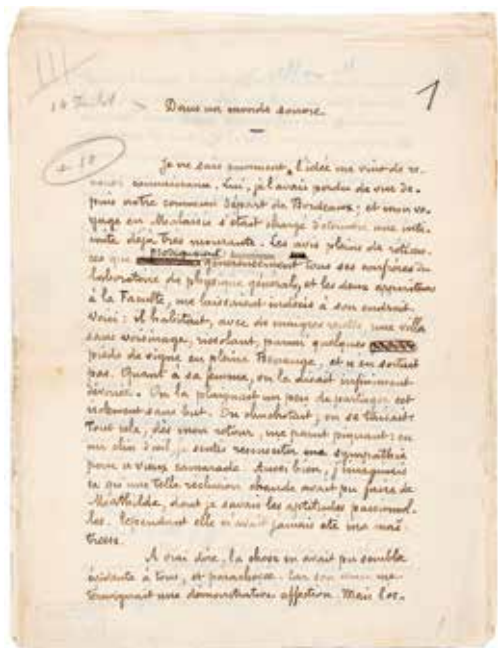 III
1
14 Juillet
Dans un monde sonore.
+ 10
Je ne sais comment, l'idée me vint de re-
nouer connaissance. Lui, je l'avais perdu de vue de-
puis notre commun départ de Bordeaux; et mon vo-
yage en Malaisie s'était chargé d'éteindre une inti-
mité déjà très mourante. Les avis pleins de réticen-
ces que prodiguaient
généreusement tous ses confrères du
laboratoire de physique générale, et les deux appariteurs
à la Faculté, me laissaient indécis à son endroit.
Voici: il habitait, avec de maigres, une villa
sans voisinage, rissolant, parmi quelques
pieds de vigne en pleine Benauge, et n'en sortait
pas. Quant à sa femme, on la disait infiniment
dévouée. On la plaignait un peu de partager cet
isolement sans but. On chuchotait, on se taisait.
Tout cela, dès mon retour, me parut piquant: en
un clin d'œil je sentis ressusciter ma sympathie
pour ce vieux camarade. Aussi bien, j'imaginais
ce qu'une telle réclusion chaude avait pu faire de
Mathilde, dont je savais les aptitudes passionnel-
les. Cependant elle n'avait jamais été ma maî-
tresse.
A vrai dire, la chose en avait pu sembler
évidente à tous, et
témoignait une démonstrative affection. Mais